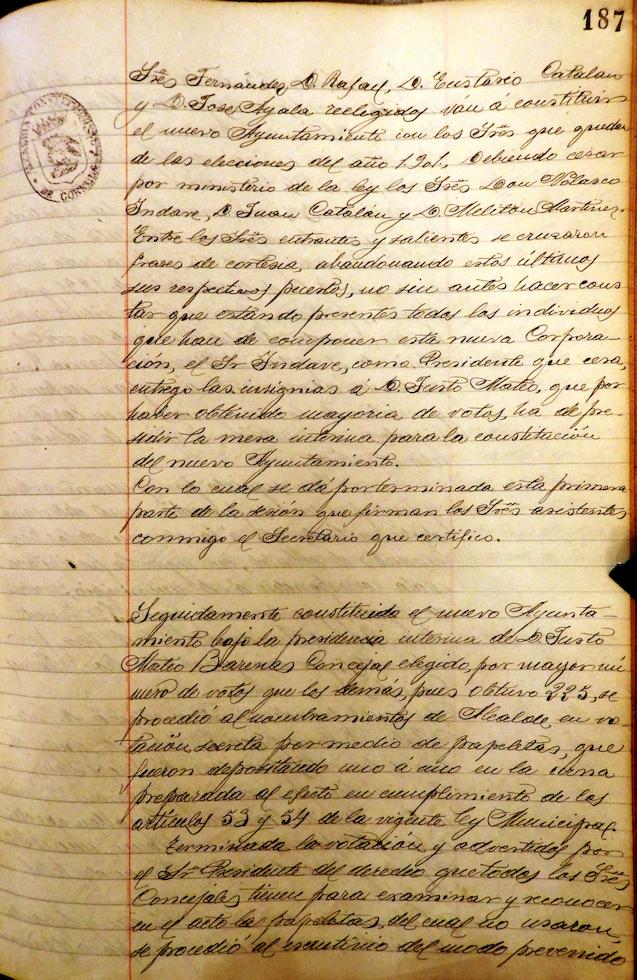 187
Sres Fernández, D. Rafael, D. Eustasio Catalan
y D. Jose Ayala reelegidos van á constituir
el nuevo Ayuntamiento con los Sres que quedan
de las elecciones del año 1901, debiendo cesar
por ministerio de la ley los Sres Don Velasco
Indave, D. Juan Catalán y D. Meliton Martinez.
Entre los Sres entrantes y salientes se cruzaron
frases de cortesia, abandonando estos últimos
sus respectivos puestos, no sin antes hacer cons
tar que estando presentes todos los individuos
que han de componer esta nueva Corpora-
ción, el Sr Indave, como Presidente que cesa,
entregó las insignias á D. Justo Mateo, que por
haber obtenido mayoria de votos, ha de pre-
sidir la mesa interina para la constitución
del nuevo Ayuntamiento.
Con lo cual se dá por terminada esta primera
parte de la sesión que firman los Sres asistentes
conmigo el Secretario que certifico.
Seguidamente constituida el nuevo Ayunta-
miento bajo la presidencia interina de D. Justo
Mateo Barenas Concejal elegido, por mayor nú
mero de votos que los demás, pues obtuvo 225, se
procedió al nombramientos de Alcalde, en vo-
tación secreta por medio de papeletas, que
fueron depositando uno á uno en la urna
preparada al efecto en cumplimiento de los
artículos 53 y 54 de la vigente ley Municipal.
Terminada la votación y advertidos por
el Sr Presidente del derecho que todos los Sres
Concejales tienen para examinar y reconocer
en el acto las papeletas, del cual no usaron,
se procedió al escrutinio del modo prevenido